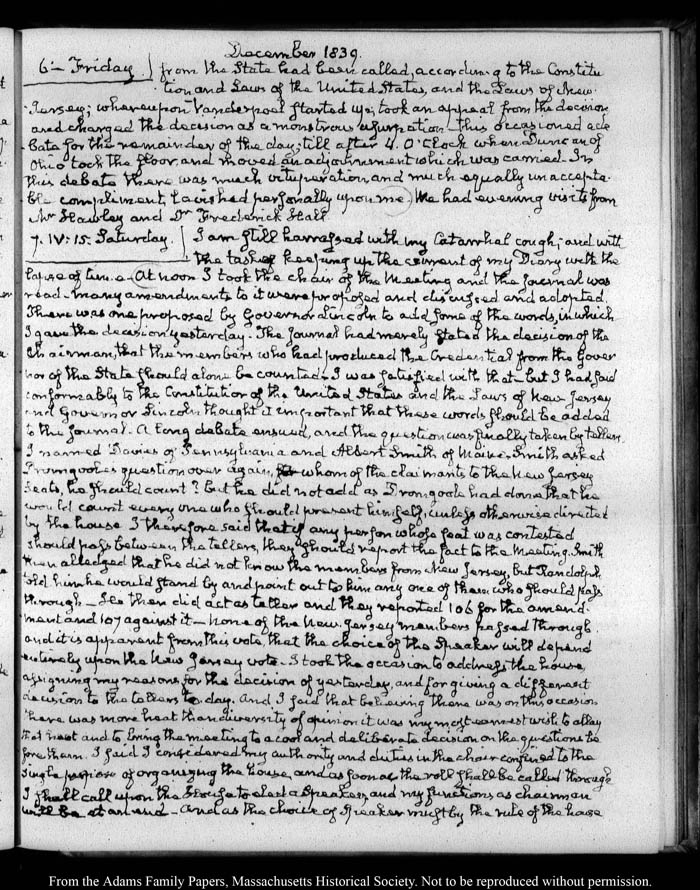 December 1839.
6.- Friday } from the State had been called, according to the Constitu
tion and Laws of the United States, and the Laws of New
Jersey; whereupon Vanderpoel started up, took an appeal from the decision
and charged the decision as a monstrous usurpation this occasioned a de
bate for the remainder of the day, till after 4. O'Clock when Duncan of
Ohio took the floor and moved an adjournment which was carried. In
this debate there was much vituperation, and much equally unaccepta
ble compliment, lavished personally upon me. We had evening visits from
Mr Hawley and Dr Frederick Hall
7. IV:15. Saturday. } I am still harrassed with my Catarrhal cough; and with
the task of keeping up the current of my Diary with the
lapse of time- At noon I took the chair of the Meeting and the Journal was
read- many amendments to it were proposed and discussed and adopted.
There was one proposed by Governor Lincoln to add some of the words, in which
I gave the decision yesterday- The Journal had merely stated the decision of the
Chairman, that the members who had produced the Credential from the Gover
nor of the State should alone be counted- I was satisfied with that- but I had said
conformably to the Constitution of the United States and the Laws of New Jersey
and Governor Lincoln thought it important that these words should be added
to the Journal. A long debate ensued, and the question was finally taken by tellers,
I named Davies of Pennsylvania and Albert Smith of Maine- Smith asked
Dromgoole's question over again, whom of the claimants to the New Jersey
seats, he should count? but he did not add as Dromgoole had done that he
would count every one who should present himself, unless otherwise directed
by the house I therefore said that if any person whose seat was contested
should pass between the tellers, they should report the fact to the Meeting. Smith
then alledged that he did not know the members from New Jersey, but Randolph
told him he would stand by and point out to him any one of them who should pass
through- He then did act as teller and they reported 106 for the amend
ment and 107 against it- none of the New Jersey members passed through
and it is apparent from this vote, that the choice of the Speaker will depend
entirely upon the New Jersey vote- I took the occasion to address the house,
assigning my reasons for the decision of yesterday, and for giving a different
decision to the tellers to day. And I said that believing there was on this occasion
there was more heat than diversity of opinion it was my most earnest wish to allay
that heat and to bring the meeting to a cool and deliberate decision on the questions be
fore them. I said I considered my authority and duties in the chair confined to the
single purpose of organizing the house, and as soon as the roll shall be called through
I shall call upon the House to elect a Speaker, and my functions as chairman
will be at an end- And as the choice of Speaker must by the rule of the house
From the Adams Family Papers, Massachusetts Historical Society. Not to be reproduced without permission.